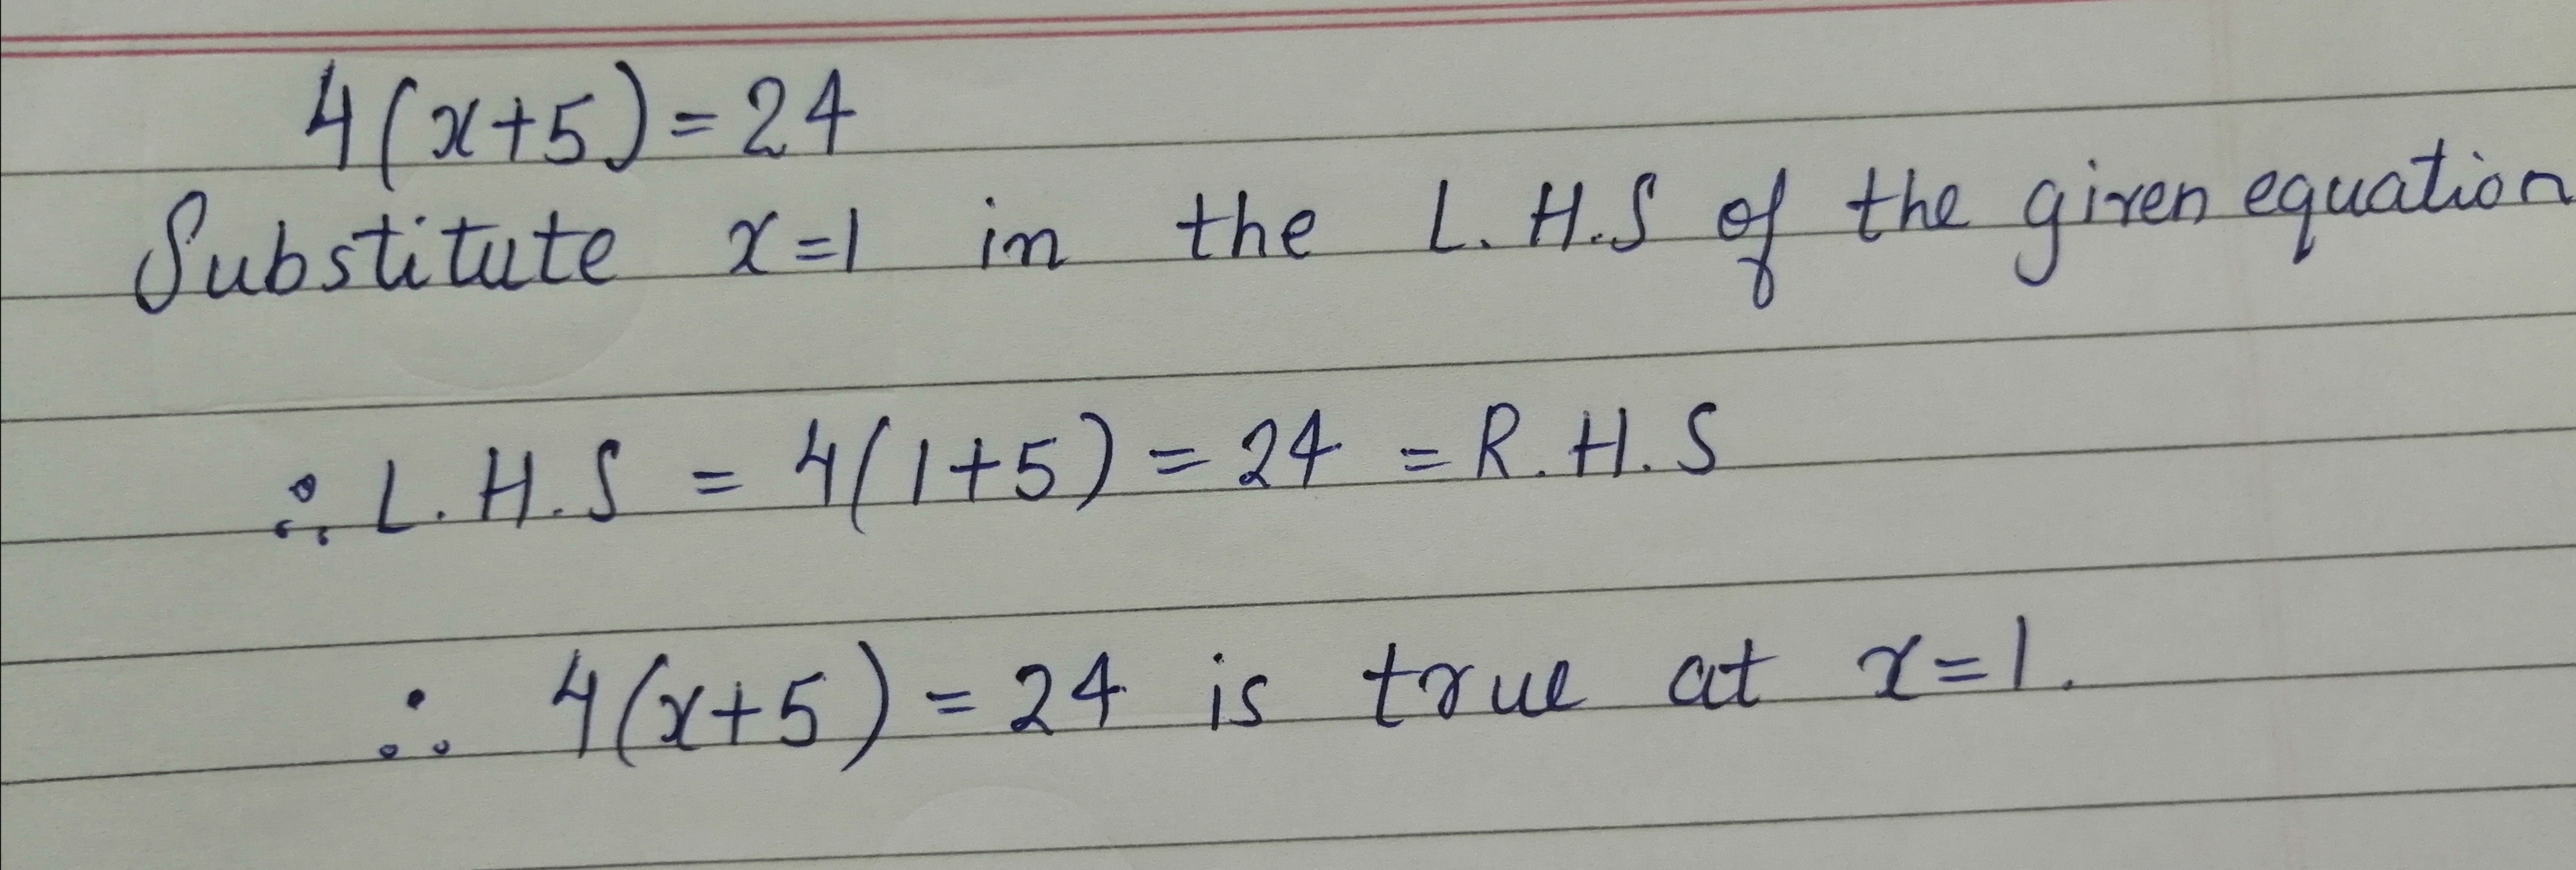 4(x+5)=24
Substitute x=1 in the L.H.S of the given equation
∴ L.H.S = 4(1+5) = 24 = R.H.S
∴ 4(x+5) = 24 is true at x=1.